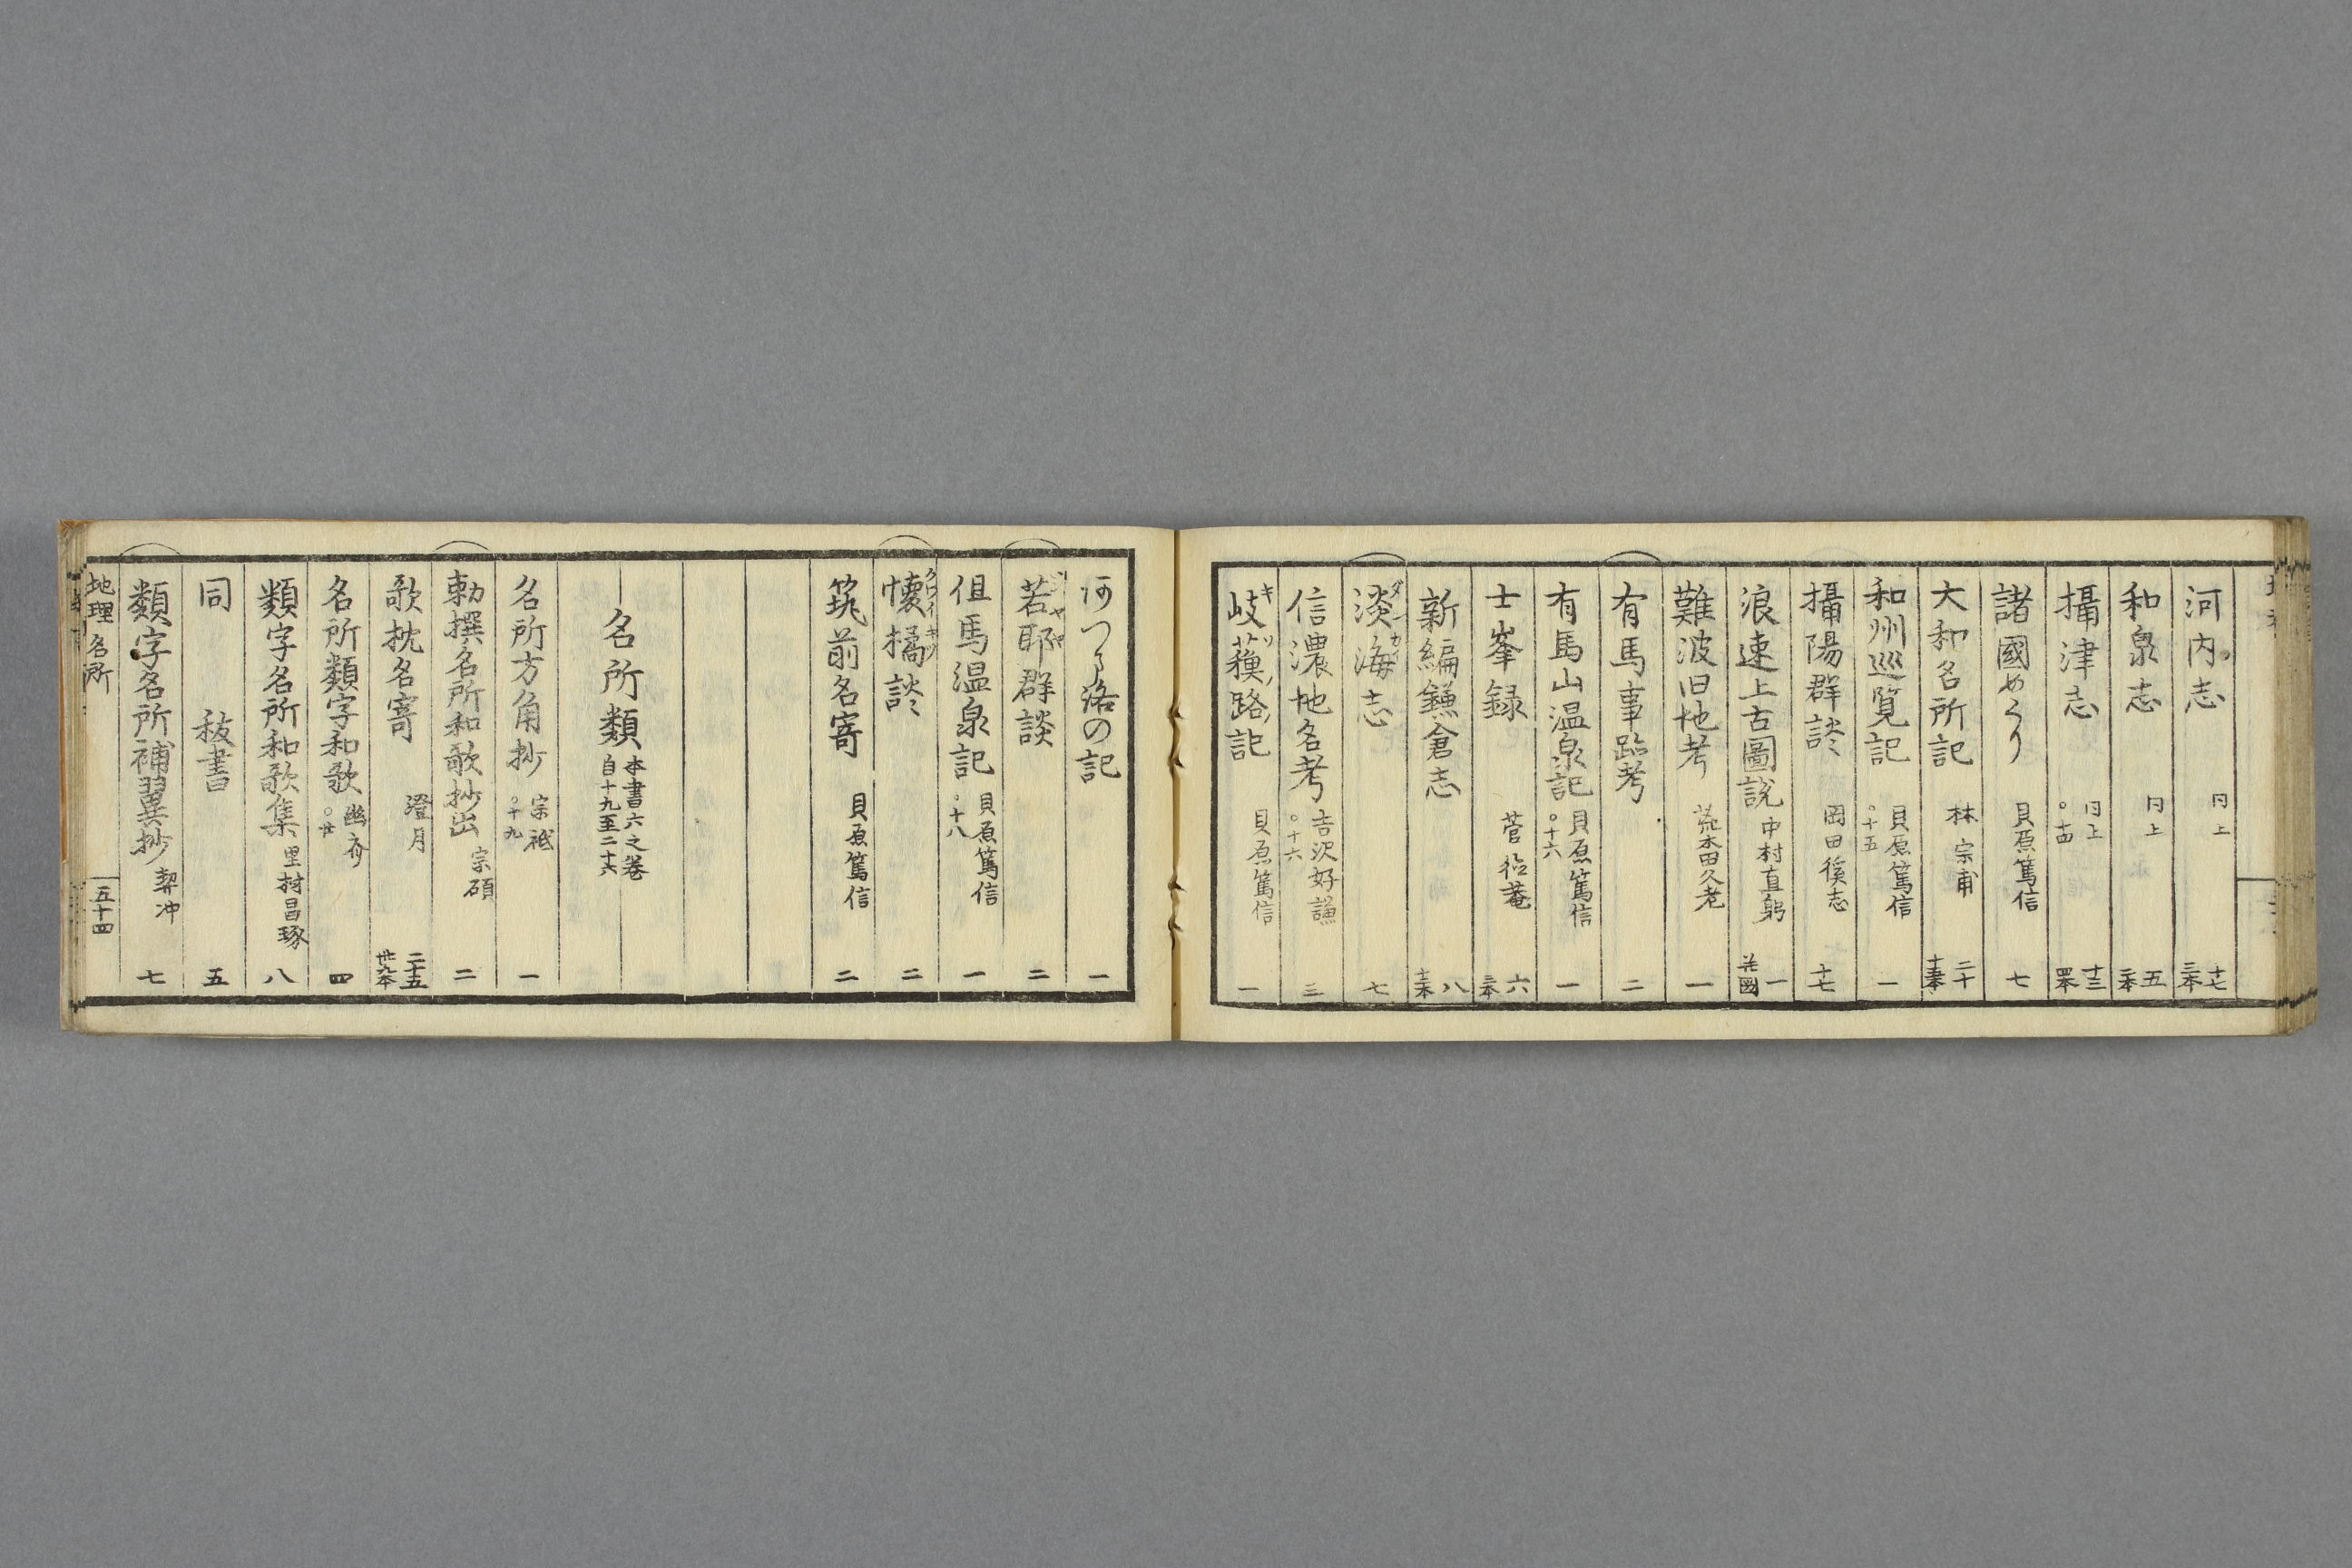 河内志 同上 十七 三本
和泉志 同上 五 二本
攝津志 同上 ○十四 十三 四本
諸國めくり 貝原篤信 七
大和名所記 林宗甫 二十 十五本
和州巡覧記 貝原篤信 ○十五 一
攝陽群談 岡田徯志 十七
浪速上古圖説 中村直躬 一
難波旧地考 荒木田久老 一
有馬事跡考 二
有馬山温泉記 貝原篤信 ○十六 一
士峯録 菅 菴 六 三本
新編鎌倉志 八 十二本
淡海志 七
信濃地名考 吉沢好謙 ○十六 三
岐蘓路ノ記 キソノ 貝原篤信 一
つる 濱の記 一
若耶群談 ジヤヤ 二
但馬温泉記 貝原篤信 ○十八 一
懐橘談 クワイキツ 二
筑前名寄 貝原篤信 二
名所類 本書六之巻 自十九至二十六
名所方角抄 宗祇 ○十九 一
勅撰名所和歌抄出 宗碩 二
歌枕名寄 澄月 二十五 卅九本
名所類字和歌 幽斎 ○廿 四
類字名所和歌集 里村昌琢 八
同 秡書 五
類字名所補翼抄 契沖 七
地理 名所 五十四